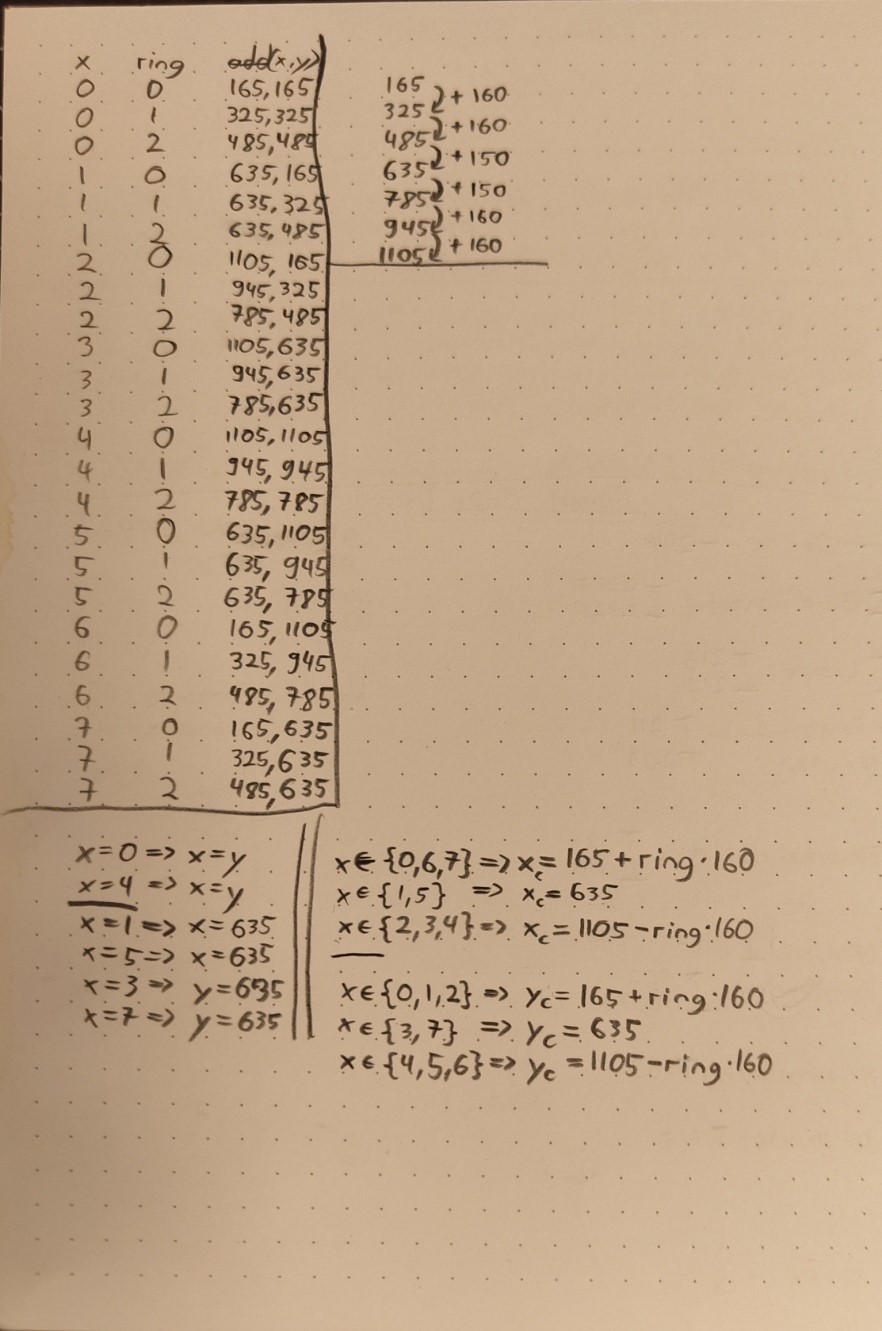 x ring add(x,y)
0 0 165,165
0 1 325,325
0 2 485,485
1 0 635,165
1 1 635,325
1 2 635,485
2 0 1105,165
2 1 945,325
2 2 785,485
3 0 1105,635
3 1 945,635
3 2 785,635
4 0 1105,1105
4 1 945,945
4 2 785,785
5 0 635,1105
5 1 635,945
5 2 635,785
6 0 165,1105
6 1 325,945
6 2 485,785
7 0 165,635
7 1 325,635
7 2 485,635
165
+160
325
+160
485
+150
635
+150
785
+160
945
+160
1105
x=0=>x=y
x=4=>x=y
x=1=>x=635
x=5=>x=635
x=3=>y=635
x=7=>y=635
x∈{0,6,7}=>x_c=165+ring·160
x∈{1,5}=>x_c=635
x∈{2,3,4}=>x_c=1105-ring·160
x∈{0,1,2}=>y_c=165+ring·160
x∈{3,7}=>y_c=635
x∈{4,5,6}=>y_c=1105-ring·160